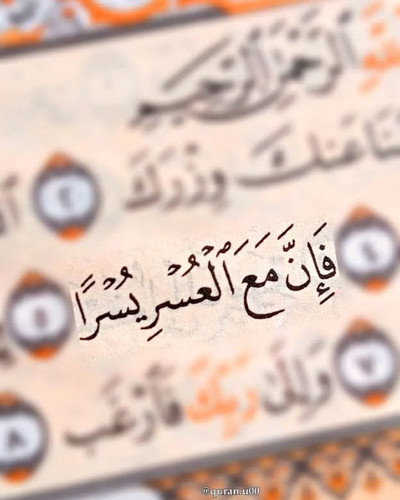 ٱللَّهِ ٱلرَّحْمَٰنِ ٱلرَّحِيمِ
عَنكَ وِزْرَكَ ٢
٤ فَإِنَّ مَعَ ٱلْعُسْرِ يُسْرًا ٥
٧ وَإِلَىٰ رَبِّكَ فَٱرْغَب ٨
@quran.u00